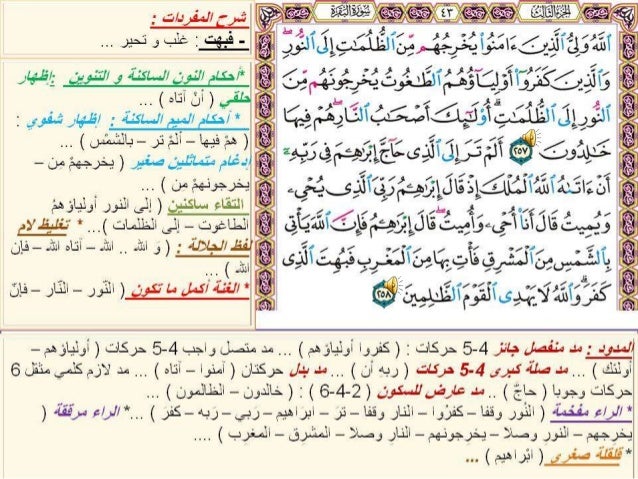 الجزء الثالث ٤٣ سورة البقرة
ٱللَّهُ وَلِىُّ ٱلَّذِينَ ءَامَنُوا۟ يُخْرِجُهُم مِّنَ ٱلظُّلُمَـٰتِ إِلَى ٱلنُّورِ ۖ
وَٱلَّذِينَ كَفَرُوٓا۟ أَوْلِيَآؤُهُمُ ٱلطَّـٰغُوتُ يُخْرِجُونَهُم مِّنَ
ٱلنُّورِ إِلَى ٱلظُّلُمَـٰتِ ۗ أُو۟لَـٰٓئِكَ أَصْحَـٰبُ ٱلنَّارِ ۖ هُمْ فِيهَا
خَـٰلِدُونَ ٢٥٧ أَلَمْ تَرَ إِلَى ٱلَّذِى حَآجَّ إِبْرَٰهِـۧمَ فِى رَبِّهِۦٓ
أَنْ ءَاتَىٰهُ ٱللَّهُ ٱلْمُلْكَ إِذْ قَالَ إِبْرَٰهِـۧمُ رَبِّىَ ٱلَّذِى يُحْىِۦ
وَيُمِيتُ قَالَ أَنَا۠ أُحْىِۦ وَأُمِيتُ ۖ قَالَ إِبْرَٰهِـۧمُ فَإِنَّ ٱللَّهَ يَأْتِى
بِٱلشَّمْسِ مِنَ ٱلْمَشْرِقِ فَأْتِ بِهَا مِنَ ٱلْمَغْرِبِ فَبُهِتَ ٱلَّذِى
كَفَرَ ۗ وَٱللَّهُ لَا يَهْدِى ٱلْقَوْمَ ٱلظَّـٰلِمِينَ ٢٥٨
شرح المفردات :
- فبهت : غلب و تحير ...
*أحكام النون الساكنة و التنوين :إظهار
حلقي ( أنْ آتاه ) ...
* أحكام الميم الساكنة : إظهار شفوي :
( همْ فيها – ألمْ تر – بالشمْس ) ...
إدغام متماثلين صغير ( يخرجهمْ مِن –
يخرجونهمْ مِن ) ...
التقاء ساكنين ( إلى النور أولياؤهمُ
الطاغوت – إلى الظلمات )...* تغليظ لام
لفظ الجلالة : ( وَ الله .. الله – آتاه الله – فإن
الله ) ...
* الغنة أكمل ما تكون ( النّور – النّار – فإنّ
المدود : مد منفصل جائز 4-5 حركات : ( كفروا أولياؤهم ) ... مد متصل واجب 4-5 حركات ( أولياؤهم –
أولئك ) ... مد صلة كبرى 4-5 حركات ( ربه أن ) ... مد بدل حركتان ( آمنوا – آتاه ) ... مد لازم كلمي مثقل 6
حركات وجوبا ( حاجّ ) .. مد عارض للسكون ( 2-4-6 ) : ( خالدون – الظالمون ) ...
* الراء مفخمة ( النُور وقفا – كفرُوا – النار وقفا – ترَ – ابرَاهيم – رَبي – رَبه – كفرَ ) ...* الراء مرققة (
يخرجهم – النورِ وصلا – يخرجونهم – النارِ وصلا – المشرق – المغرب ) ....
* قلقلة صغرى ( ابْراهيم ) ...